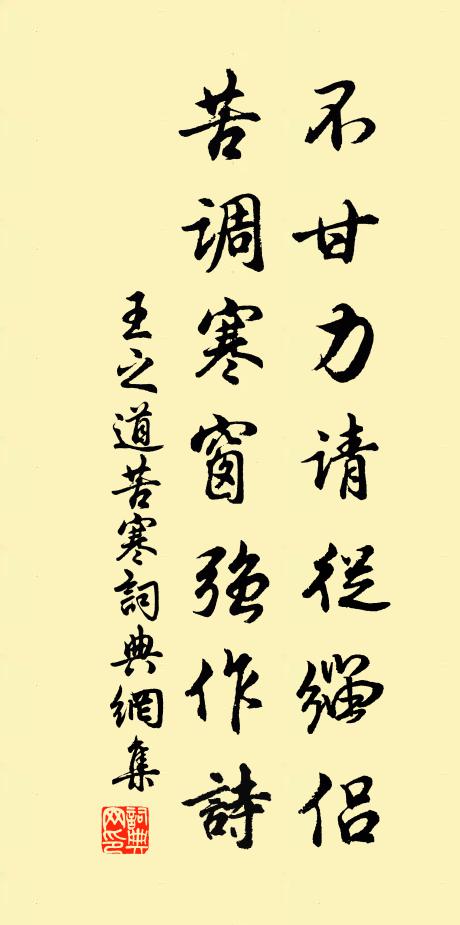 不甘力请從缁侣
苦調寒窗强作詩
王之道苦寒詞典網集
詞典网印